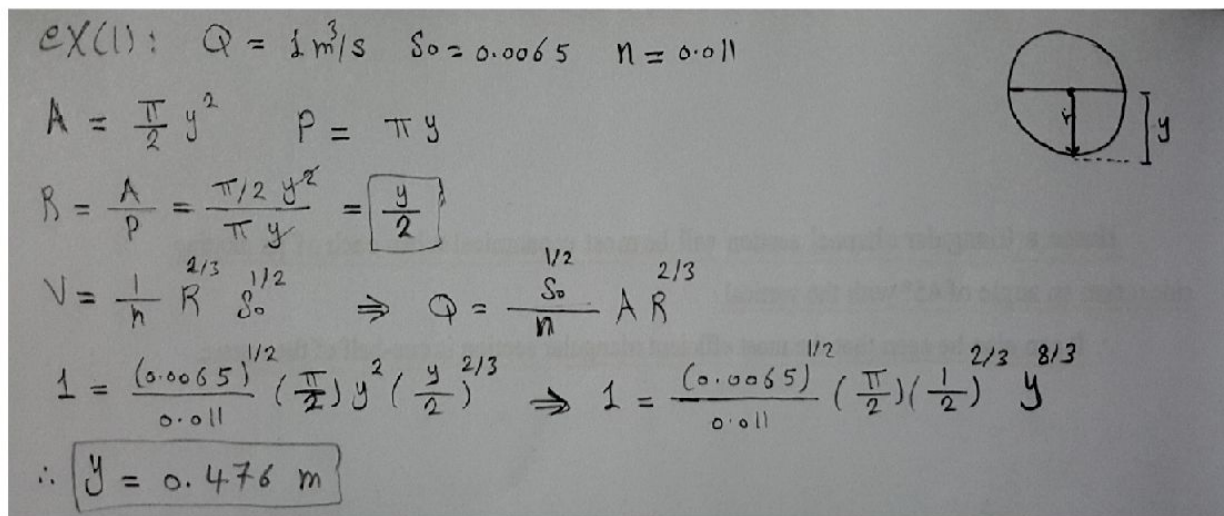 ex(1): Q = 1 m³/s So = 0.0065 n = 0.011
A = π/2 y² P = πy
r
y
R = A/P = π/2 y²/π y = y/2
V = 1/n R^2/3 So^1/2 ⇒ Q = So^1/2/n A R^2/3
1 = (0.0065)^1/2/0.011 (π/2) y² (y/2)^2/3 ⇒ 1 = (0.0065)^1/2/0.011 (π/2)(1/2)^2/3 y^8/3
∴ y = 0.476 m